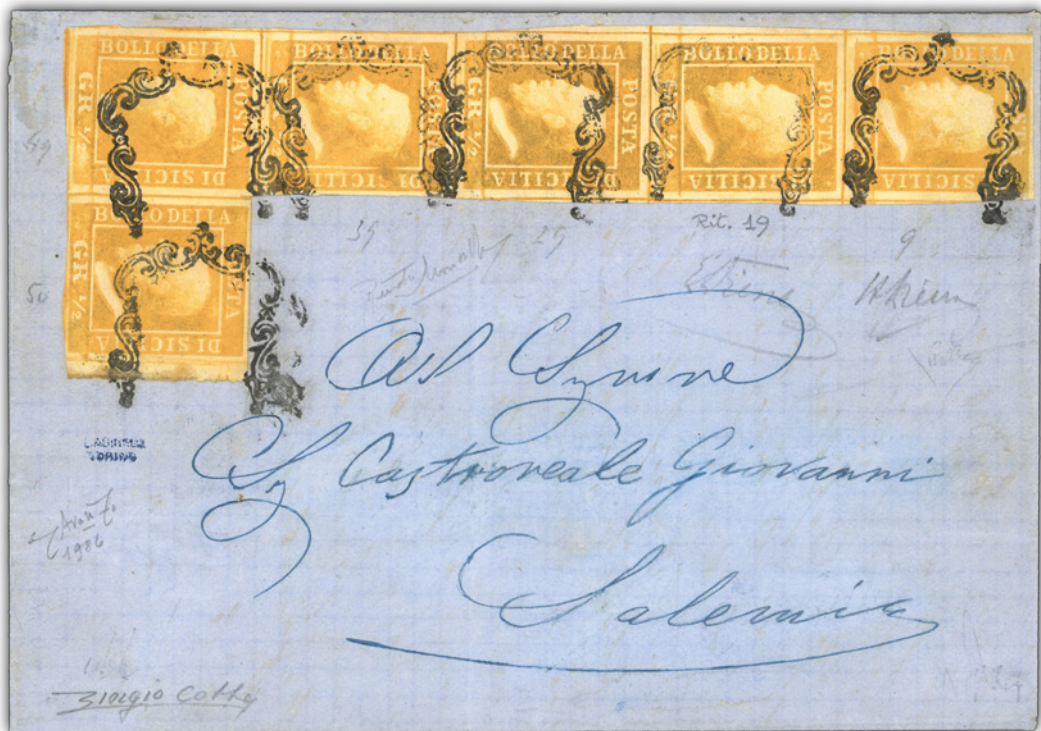 BOLLO DELLA POSTA DI SICILIA GR. 1/2
BOLLO DELLA POSTA DI SICILIA
BOLLO DELLA POSTA DI SICILIA GR. 1/2
BOLLO DELLA POSTA DI SICILIA
BOLLO DELLA DI SICILIA GR. 1/2
49
BOLLO DELLA POSTA DI SICILIA GR. 1/2
39 29 Rit. 19 9
50
Al Signore
Sg Castroreale Giovanni
TORINO
Avanzo
1986
Salemi
Giorgio Colla